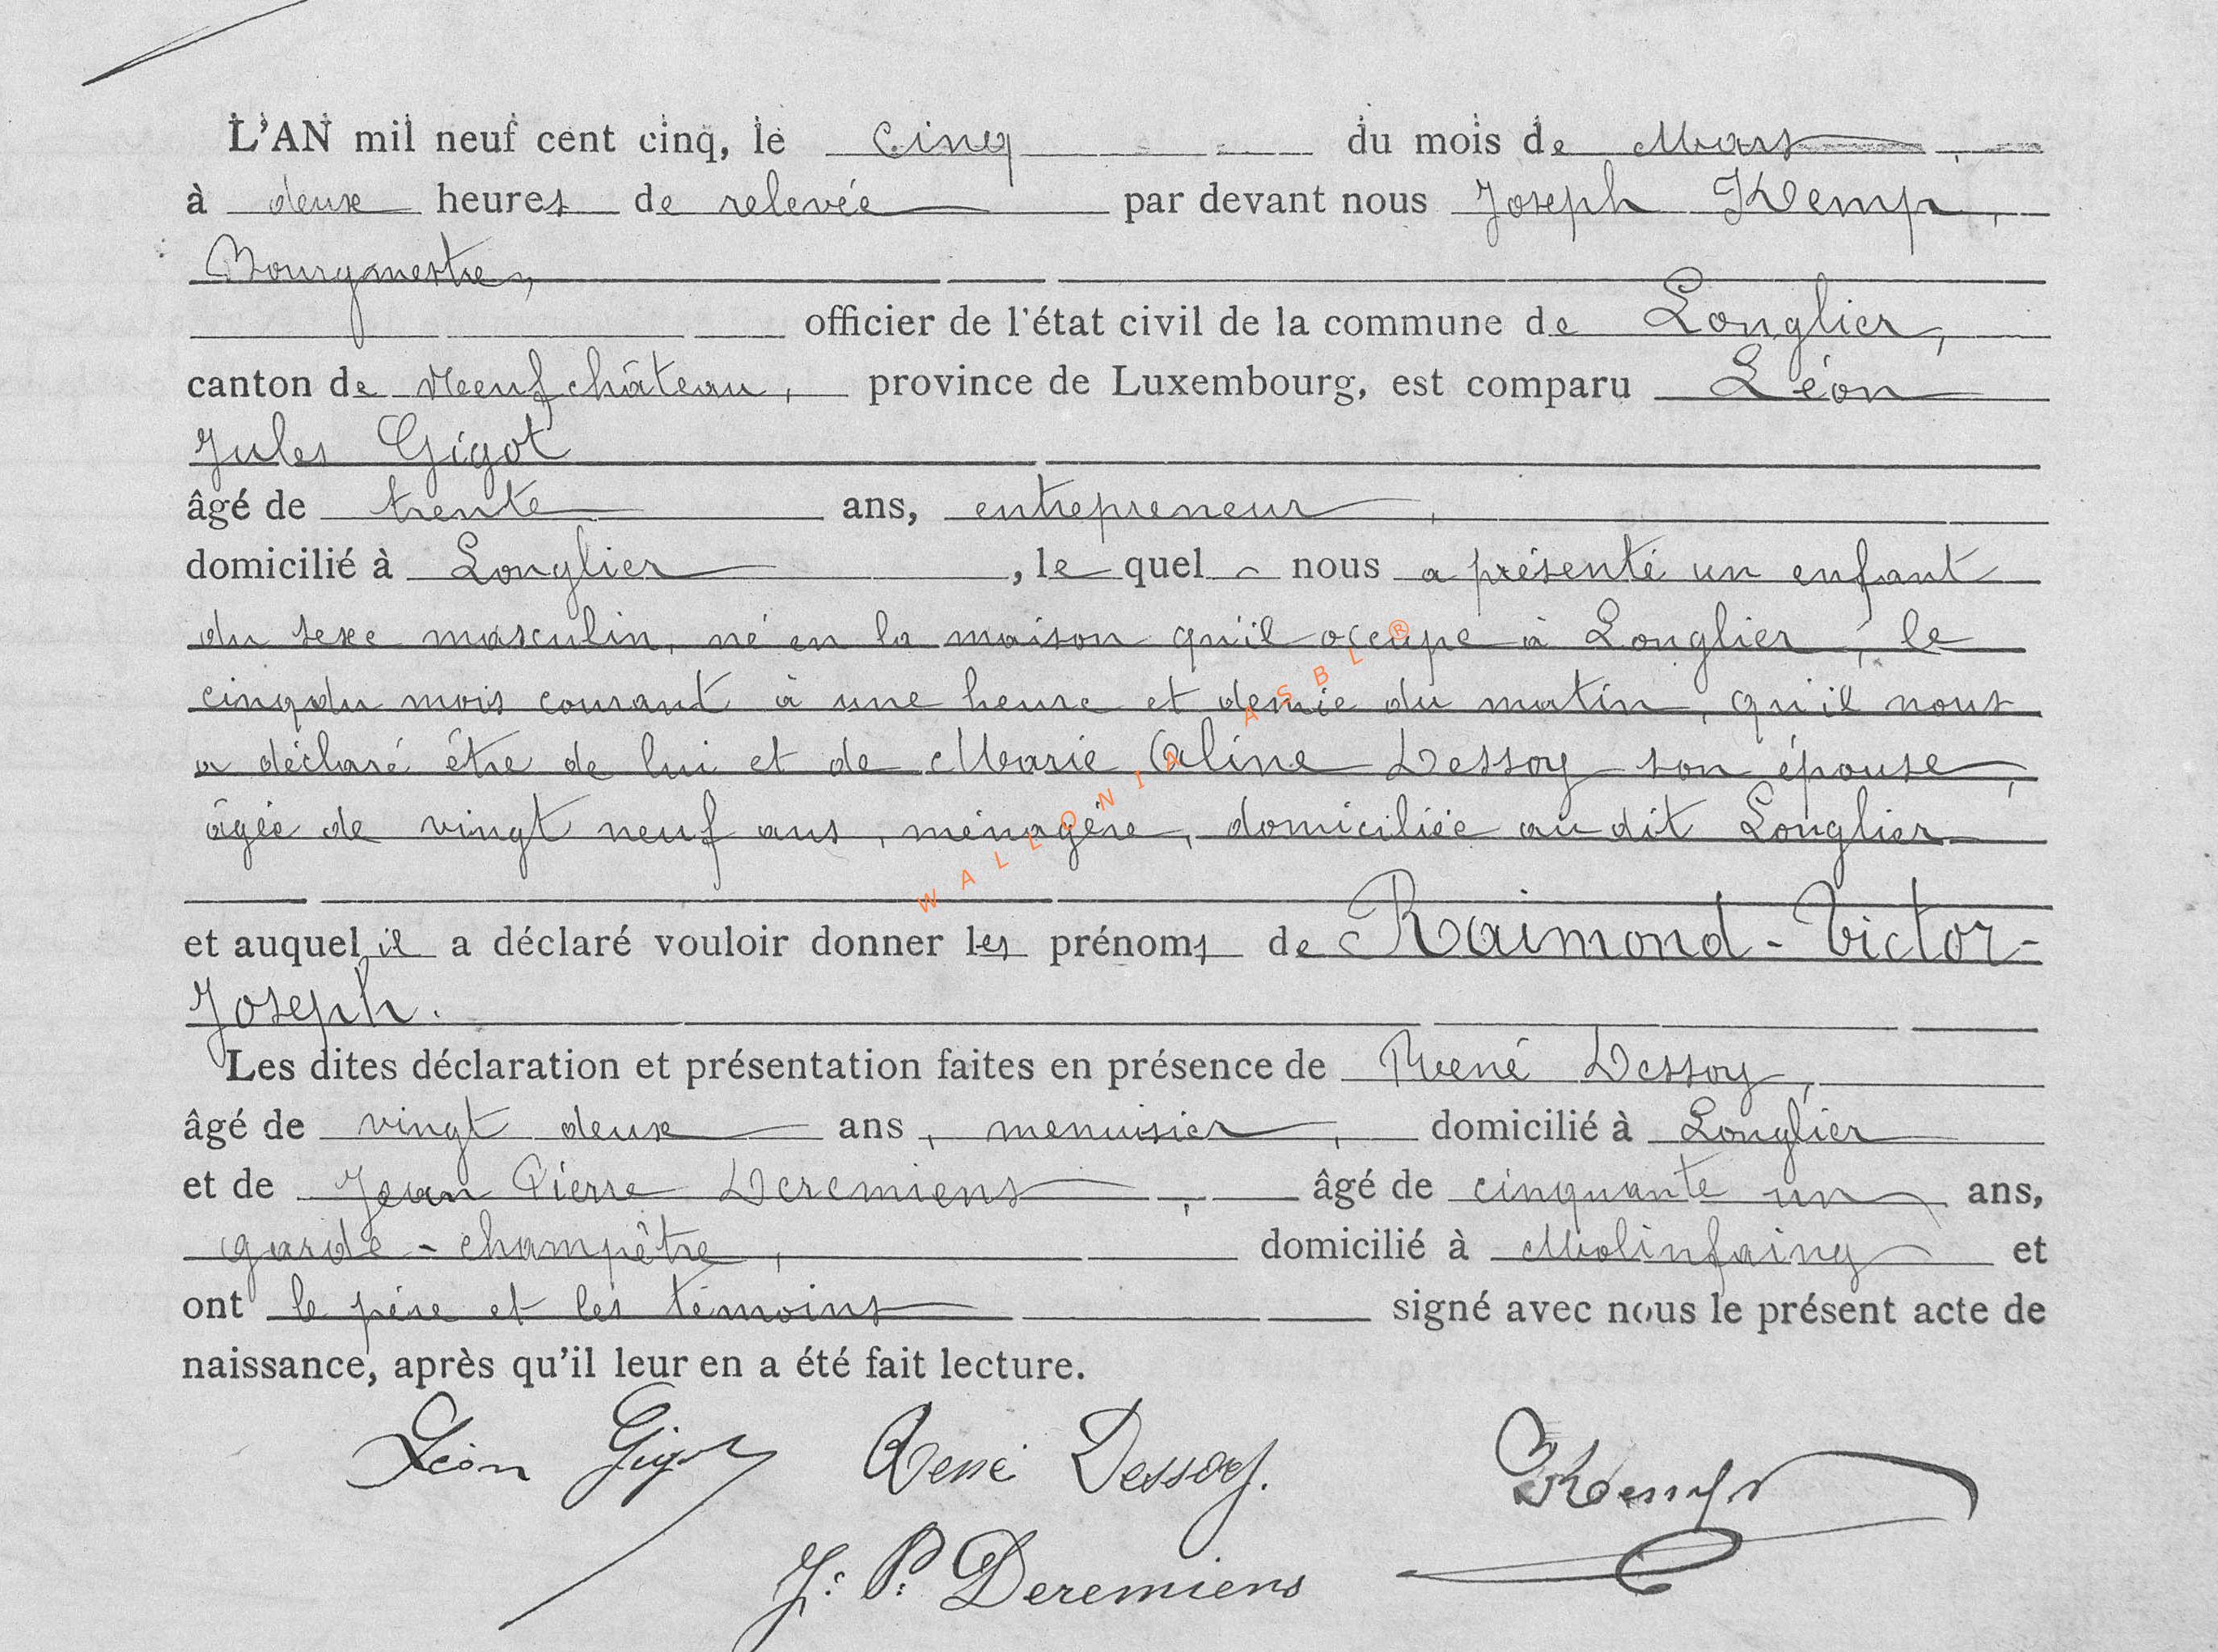 L'AN mil neuf cent cinq, le cinq du mois de Mars
à deux heures de relevée par devant nous Joseph Kemp,
Bourgmestre,
officier de l'état civil de la commune de Longlier,
canton de Neufchâteau, province de Luxembourg, est comparu Léon
Jules Gigot
âgé de trente ans, entrepreneur,
domicilié à Longlier, le quel nous a présenté un enfant
du sexe masculin, né en la maison qu'il occupe à Longlier, le
cinq du mois courant à une heure et demie du matin, qu'il nous
a déclaré être de lui et de Marie Aline Dessoy son épouse,
âgée de vingt neuf ans, ménagère, domiciliée au dit Longlier
et auquel il a déclaré vouloir donner les prénoms de Raimond-Victor-
Joseph.
Les dites déclaration et présentation faites en présence de René Dessoy,
âgé de vingt deux ans, menuisier, domicilié à Longlier
et de Jean Pierre Deremiens, âgé de cinquante un ans,
garde-champêtre, domicilié à Molinfaing et
ont le père et les témoins signé avec nous le présent acte de
naissance, après qu'il leur en a été fait lecture.
Léon Gigot René Dessoy. JKemp
J. P. Deremiens
WALLONIA ASBL ®